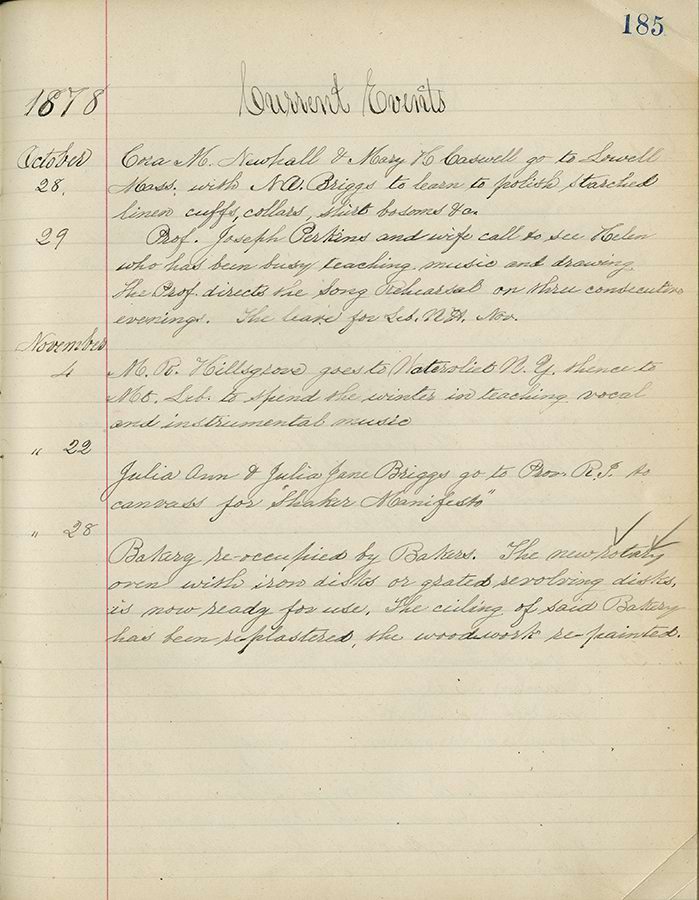 185
1878 Current Events
October Cora M. Newhall & Mary H Caswell go to Lowell
28, Mass. with N.A. Briggs to learn to polish starched
linen cuffs, collars, shirt bosoms &c.
29 Prof. Joseph Perkins and wife call to see Helen
who has been busy teaching music and drawing.
The Prof. directs the song rehearsal on thru consecutive
evenings. The leave for Leb. N.H. Nov.
November
4 M. R. Hillsgrove goes to Watervliet N. Y. thence to
Mt. Leb. to spend the winter in teaching vocal
and instrumental music
" 22
Julia Ann & Julia Jane Briggs go to Prov. R.I. to
canvass for "Shaker Manifesto"
" 28
Bakery re-occupied by Bakers. The new rotary
oven with iron disks or grated revolving disks,
is now ready for use. The ciling of said Bakery
has been replastered, the woodwork re-painted.